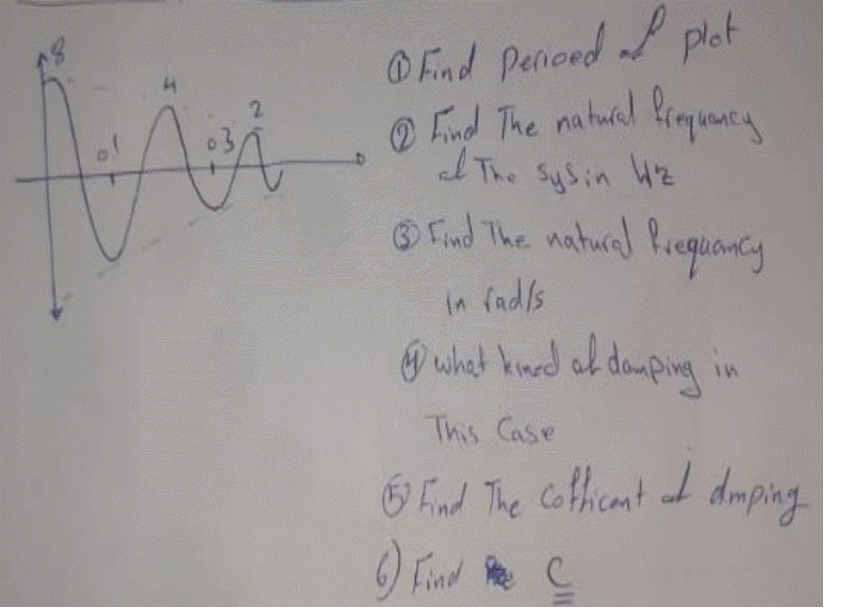 8
4
2
01
03
① Find perioed of plot
② Find The natural frequancy
of The sys in Hz
③ Find The natural frequancy
in rad/s
④ what kined of damping in
This Case
⑤ Find The Cofficent of dmping
6) Find C